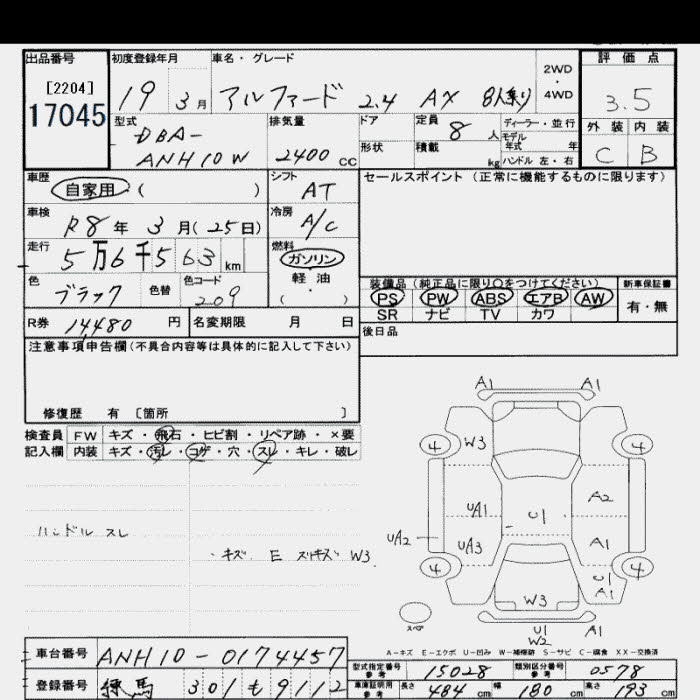 出品番号 初度登録年月 車名・グレード 評価点
[2204]
17045
19 3月 アルファード 2.4 AX 8人乗り 2WD・4WD 3.5
型式 排気量 ドア 定員 8人 ディーラー・並行 外装 内装
DBA-
ANH10W 2400cc 形状 積載 kg モデル年式 年 C B
ハンドル 左・右
車歴 シフト セールスポイント(正常に機能するものに限ります)
自家用 ( ) AT
車検 R8年 3月(25日) 冷房 A/C
走行 5万6千563km 燃料 ガソリン
軽油
( )
色 ブラック 色替 色コード 209
装備品(純正品に限り○をつけてください) 新車保証書
PS PW ABS エアB AW 有・無
SR ナビ TV カワ
R券 14480円 名変期限 月 日 後日品
注意事項申告欄(不具合内容等は具体的に記入して下さい)
修復歴 有 〔箇所 〕
検査員 FW キズ・飛石・ヒビ割・リペア跡・×要
記入欄 内装 キズ・汚レ・コゲ・穴・スレ・キレ・破レ
ハンドル スレ
・キズ E スリキズ W3
A1 A1
4 W3 4
UA1 U1 A2
UA2 UA3 A1
4 U1 4
A1
W3
スペア
U1
W2
A-キズ E-エクボ U-凹み W-補修跡 S-サビ C-腐食 XX-交換済
車台番号 ANH10-0174457
型式指定番号 参考 15028 類別区分番号 参考 0578
登録番号 練馬 301 も 9112
車庫証明用 参考 長さ 484cm 幅 180cm 高さ 193cm